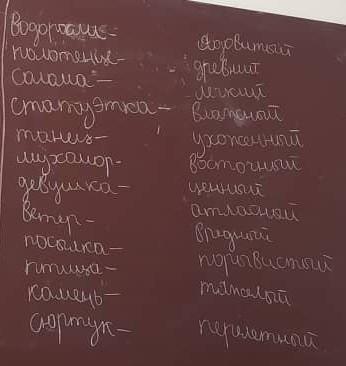 водоросли-
полотенце-
солома-
статуэтка-
танец-
мухомор-
девушка-
ветер-
посылка-
птица-
камень-
сюртук-
ядовитый
древний
лёгкий
влажный
ухоженный
восточный
ценный
атласный
вредный
порывистый
тяжёлый
перелетный